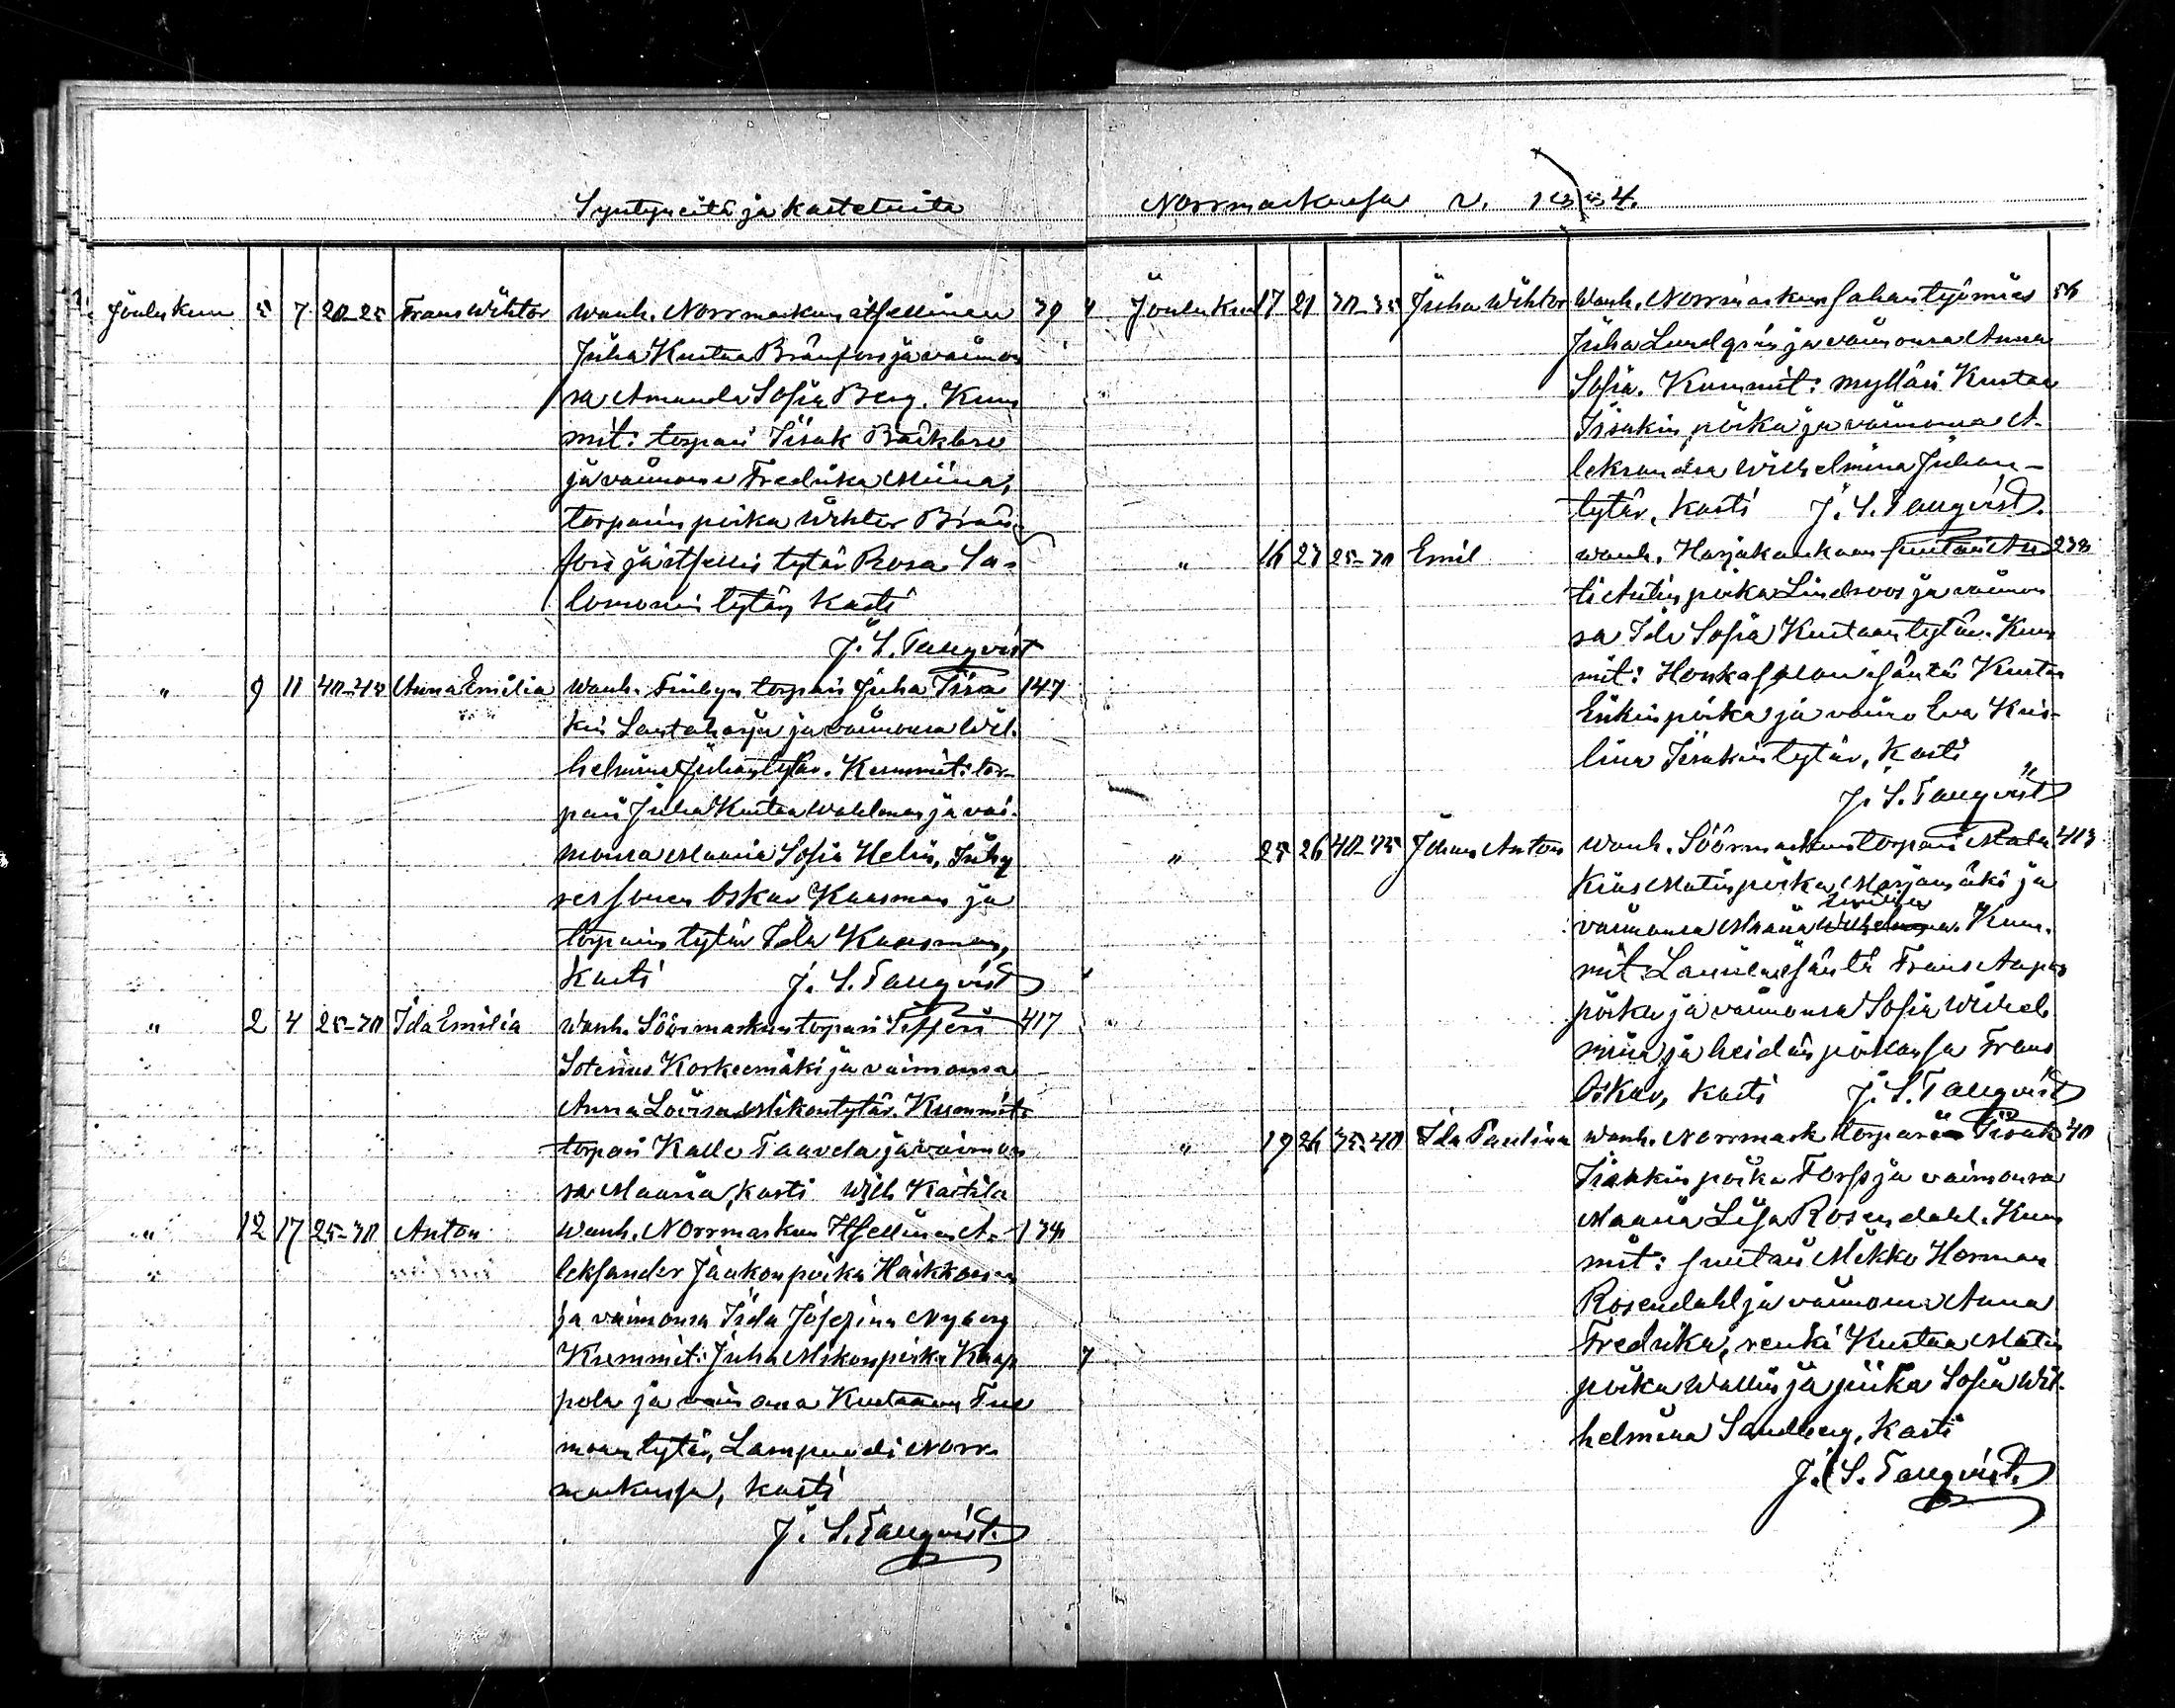 Syntyneitä ja kastetuita
Joulukuu 5 7 20-25 Frans Wihtor wanh. Norrmarkun itsellinen 39
Juha Kustaa Brånfors ja vaimon
sa Amanda Sofia Berg. Kum
mit: torpari Iisak Backlare
ja vaimonsa Fredrika Miina,
torparin poika Wihtor Brån
fors ja itsellis tytär Rosa Sa-
lomonin tytär, kasti
J. S. Tanqvist
" 9 11 40-45 Anna Emilia wanh. Finbyn torpari Juha Iisa 147
kin Lantaharju ja vaimonsa Wil-
helmina Juhantytär. Kummit: tor-
pari Juha Kustaa Wahlman ja vai-
monsa Maaria Sofia Helin,
Oskar Kaasman ja
torparin tytär Ida Kaasman,
kasti J. S. Tanqvist
" 2 4 25-30 Ida Emilia wanh. Söörmarkun torpari Seffferi 417
Soterius Korkeemäki ja vaimonsa
Anna Lovisa Mikontytär. Kummit:
torpari Kalle Taavela ja vaimon
sa Maaria, kasti Wilh Kaitila
" 12 17 25-30 Anton wanh. Norrmarkun Itsellinen A- 134
leksander Jaakonpoika Haikkonen
ja vaimonsa Iida Josefina Nyberg
Kummit: Juha Mikonpoika Kaap
pola ja vaimonsa Kustaava Tuo
maantytär, Lampuodi Norr-
markussa, kasti
J. S. Tanqvist.
Norrmarkussa v. 1884.
Joulukuu 17 21 30-35 Juha Wihtor Wanh. Norrmarkun sahantyömies 56
Juha Lundgrén ja vaimonsa Anna
Sofia. Kummit: mylläri Kustaa
Iisakin poika ja vaimonsa A-
leksandra Wilhelmina Juhan-
tytär, kasti J. S. Tanqvist.
" 16 23 25-30 Emil wanh. Harjakankaan suutari An 238
ti Antinpoika Lindroos ja vaimon
sa Ida Sofia Kustaantytär. Kum
mit: Honkasalon isäntä Kustaa
Erkinpoika ja vaimo Eva Kris-
tiina Iisakintytär, kasti
J. S. Tanqvist
" 25 26 40-45 Johan Anton wanh. Söörmarkun torpari Mata 413
Kias Matinpoika Marjamäki ja
Emilia
vaimonsa Maaria Wilhelmina. Kum-
mit: Laurilan isäntä Frans Aapon
poika ja vaimonsa Sofia Wilhel
miina ja heidän poikansa Frans
Oskar, kasti J. S. Tanqvist
" 19 26 35-40 Ida Paulina wanh. Norrmark torpari Iisak 40
Iisakin poika Forss ja vaimonsa
Maaria Liisa Rosendahl. Kum
mit: suutari Mikko Herman
Rosendahl ja vaimonsa Anna
Fredrika, renki Kustaa Matin
poika Wallin ja piika Sofia Wil-
helmina Sandberg, kasti
J. S. Tanqvist.